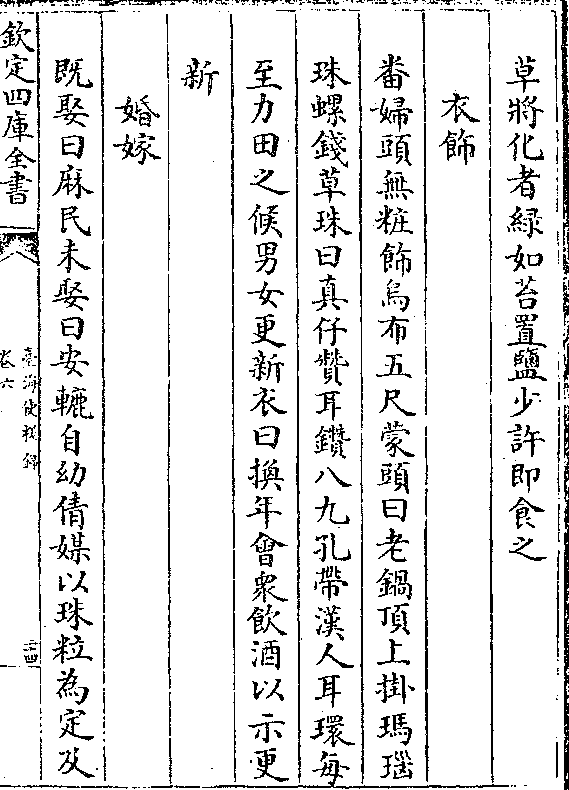 草將化者緑如苔置鹽少許即食之
衣飾
番婦頭無粧飾烏布五尺蒙頭曰老鍋頂上掛瑪瑙
珠螺錢草珠曰真仔贊耳鑽八九孔帶漢人耳環每
至力田之候男女更新衣曰換年會衆飲酒以示更
新
婚嫁
既娶曰麻民未娶曰安轆自幼倩媒以珠粒為定及
欽定四庫全書
臺海使槎錄
卷六
二四